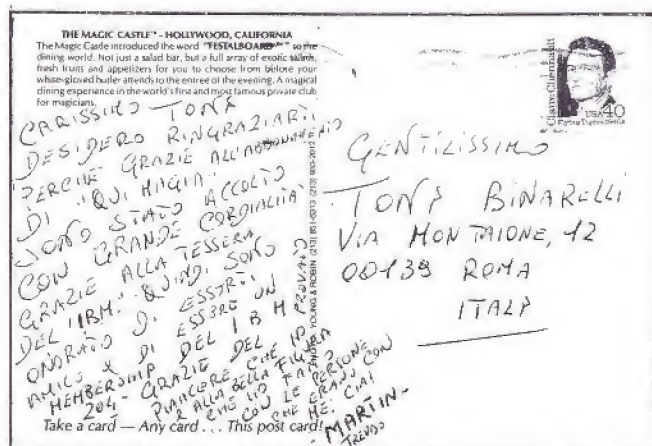 THE MAGIC CASTLE™ - HOLLYWOOD, CALIFORNIA
The Magic Castle introduced the word "FESTALBOARD™" to the
dining world. Not just a salad bar, but a full array of exotic salads,
fresh fruits and appetizers for you to choose from before your
white-gloved butler attends to the entree of the evening. A magical
dining experience in the world's first and most famous private club
for magicians.
CARISSIMO TONY
DESIDERO RINGRAZIARTI
PERCHÈ GRAZIE ALL'ABBONAMENTO
DI "QUI MAGIA"
SONO STATO ACCOLTO
CON GRANDE CORDIALITA'
GRAZIE ALLA TESSERA
DEL IBM. QUINDI SONO
ONORATO DI ESSERTI
AMICO & DI ESSERE UN
MEMBERSHIP DEL IBM
204 - GRAZIE DEL
PIACERE CHE HO PROVATO
& ALLA BELLA FIGURA
CHE HO FATTO
CON LE PERSONE
CHE ERANO CON
ME. CIAO
MARTIN-
Take a card — Any card . . . This post card!
YOUNG & ROBIN (213) 851-3313
Claire Chennault
USA 40
Flying Tigers
GENTILISSIMO
TONY BINARELLI
VIA MONTAIONE, 12
00139 ROMA
ITALY